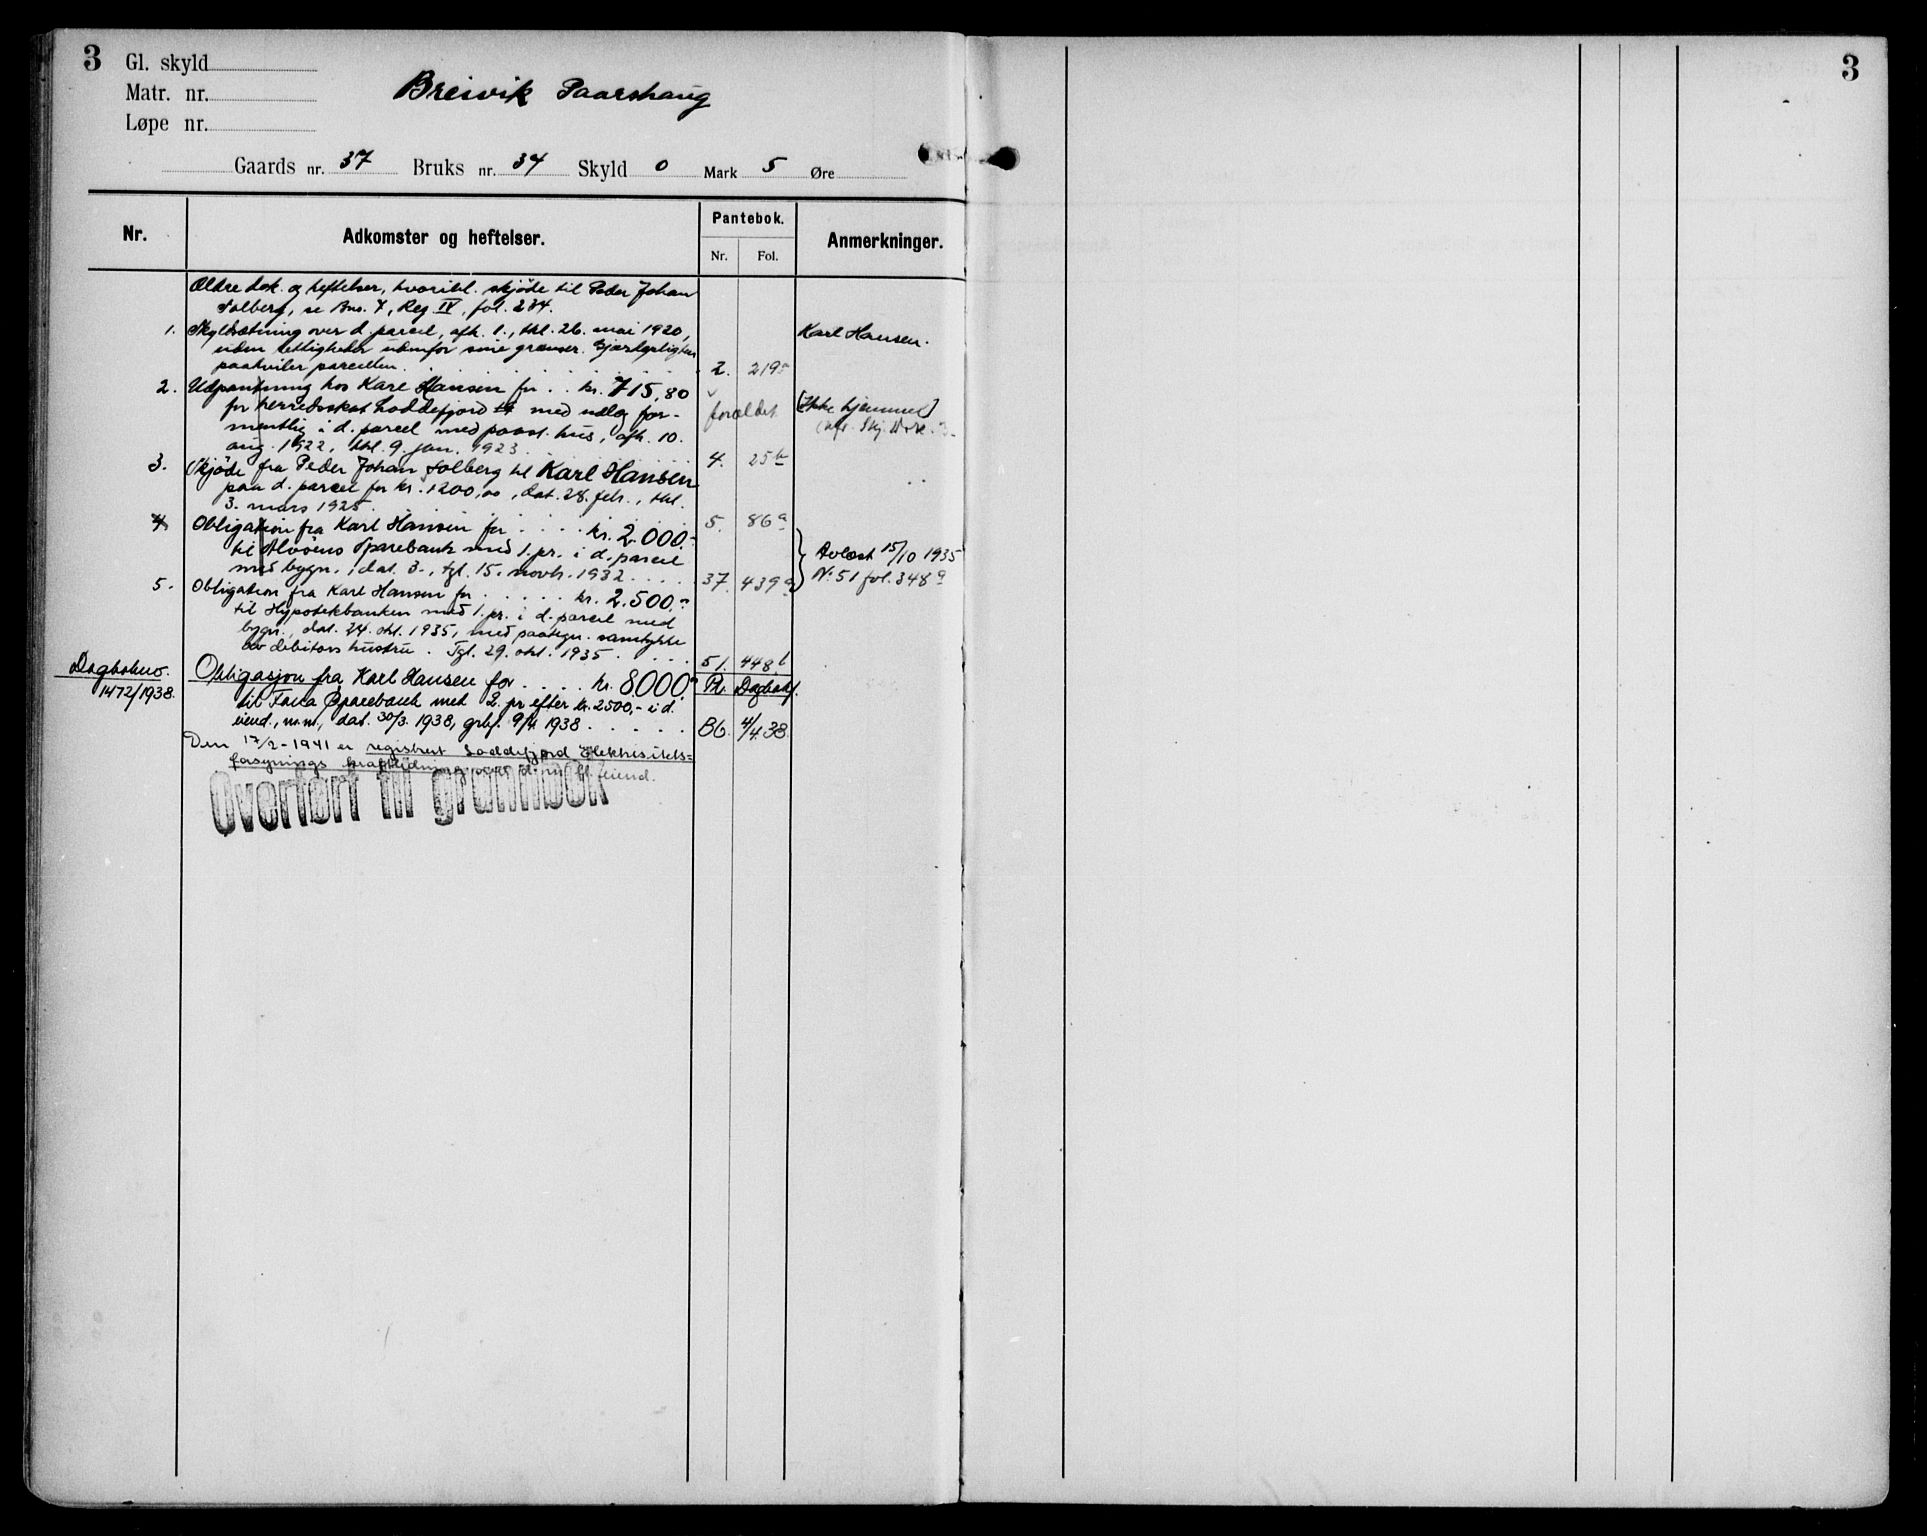 3
3
Gl. skyld
Matr. nr.
Løpe nr.
Breivik Paarshaug
Gaards nr. 37 Bruks nr. 34 Skyld 0 Mark 5 Øre
Nr.
Adkomster og heftelser.
Pantebok.
Nr. Fol.
Anmerkninger.
Ældre dok. og heftelser, hvoribl. skjøde til Peder Johan
Solberg, se Bno. 7, Reg IV, fol. 234.
1. Skyldsætning over d. parcel, afh. 1., thl. 26. mai 1920,
uden rettigheder udenfor sine grænser. Gjærdepligten
paahviler parcellen. 2. 219
Karl Hansen.
2. Udpantning hos Karl Hansen for .. kr. 715,80
for herredsskat Loddefjord med udlæg for-
mentlig i d. parcel med paast. hus, afh. 10.
aug. 1922, thl. 9. jan. 1923. 4. 25b
forældet
[Ikke hjemmel]
3. Skjøde fra Peder Johan Solberg til Karl Hansen
paa d. parcel for kr. 1200,00, dat. 28. febr., thl.
3. mars 1925. 5. 86a
4 Obligation fra Karl Hansen for .... kr. 2.000.-
til Alvøens Sparebank med 1. pr. i d. parcel
med bygn., dat. 3., tgl. 15. novbr. 1932 .... 37. 439a
Avlæst 15/10 1935
N: 51 fol. 348a
5. Obligation fra Karl Hansen for ..... kr. 2.500.-
til Hypotekbanken med 1. pr. i d. parcel med
bygn., dat. 24. okt. 1935, med paategn. samtykke
av debitors hustru. Tgl. 29. okt. 1935 .... 51. 448b
Dagboknr.
1472/1938.
Obligasjon fra Karl Hansen for .... kr. 8000.-
til Fana Sparebank med 2. pr efter kr. 2500,- i d.
eiend., m.m., dat. 30/3. 1938, grbf. 9/4 1938 .....
Pb. Dagbokf.
B6. 4/4.38.
Den 17/2-1941 er registrert Loddefjord Elektrisitets-
forsynings kraftledning over d. m. fl. eiend.
Overført til grunnbok